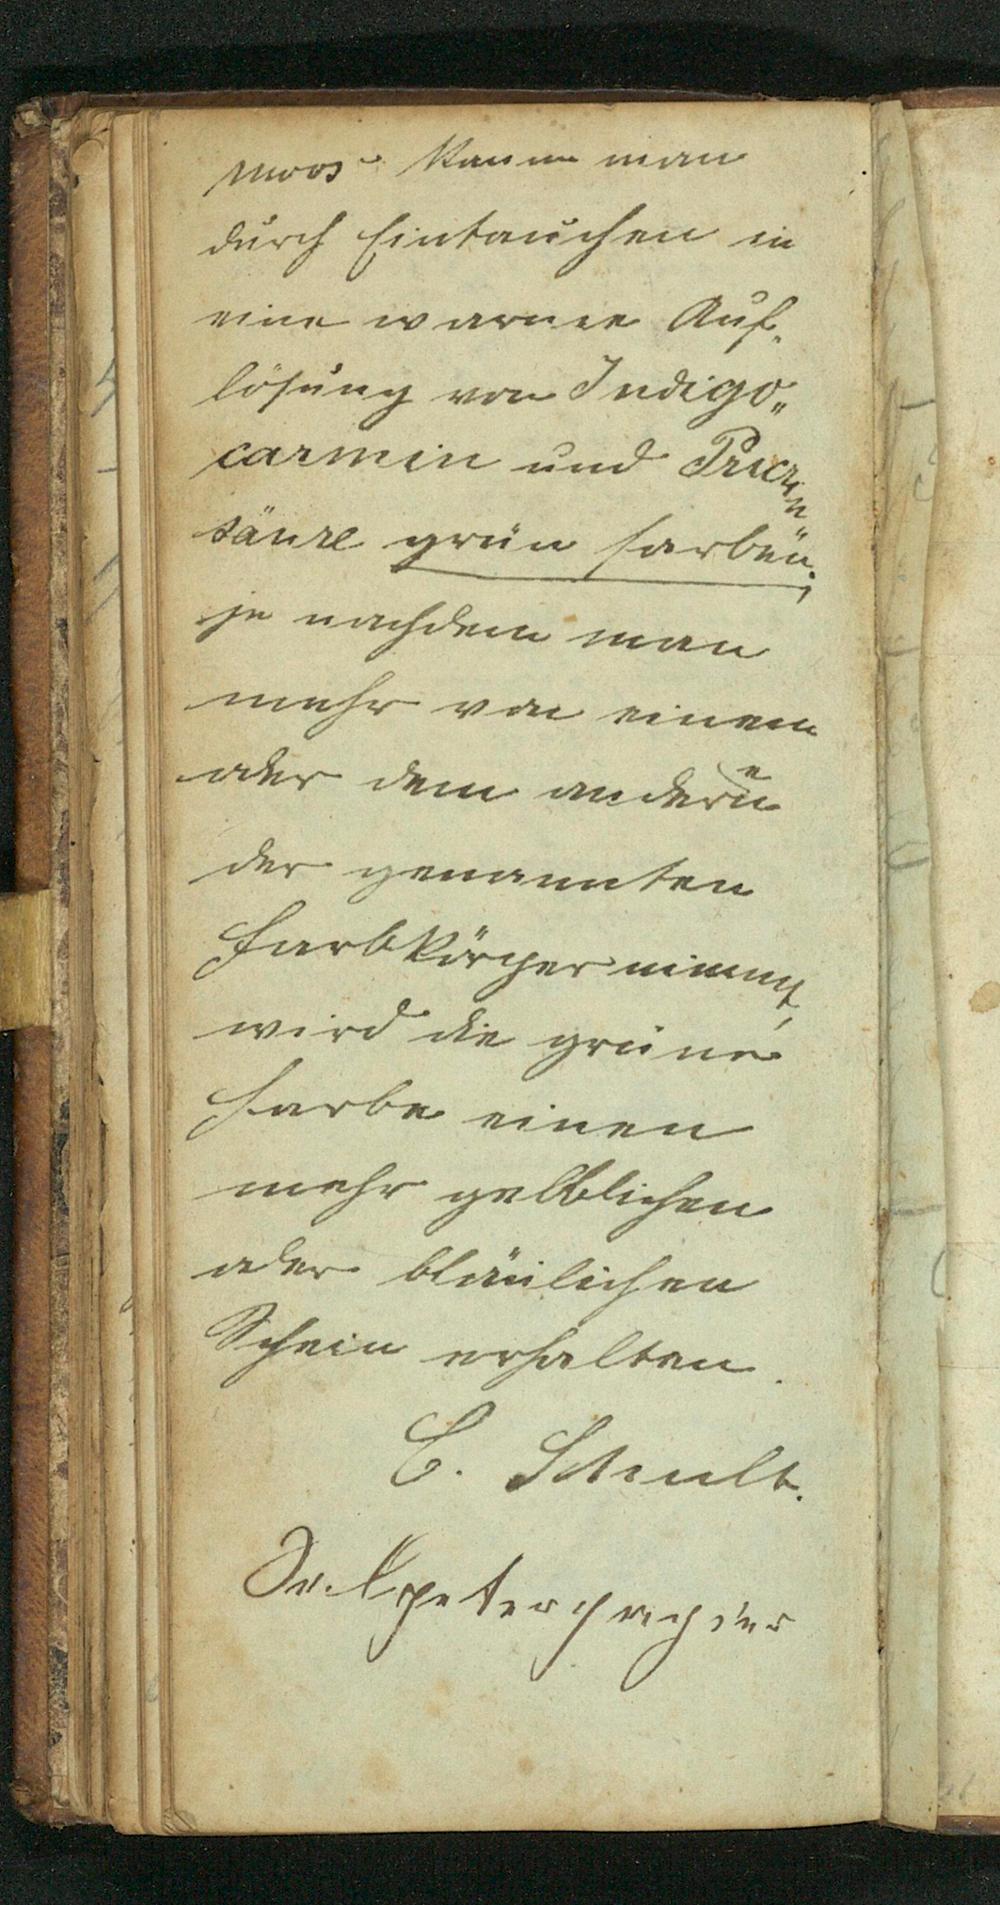 Moos kann man
durch Eintauchen in
eine warme Auf„
lösung von Indigo„
carmin und Pricrin„
säure grün farben,
je nachdem man
mehr von einem
oder dem anderen
der genannten
Farbkörper nimmt,
wird die grüne
Farbe einen
mehr gelblichen
oder bläulichen
Schein erhalten.
C. Schult.
Salpeterpapier